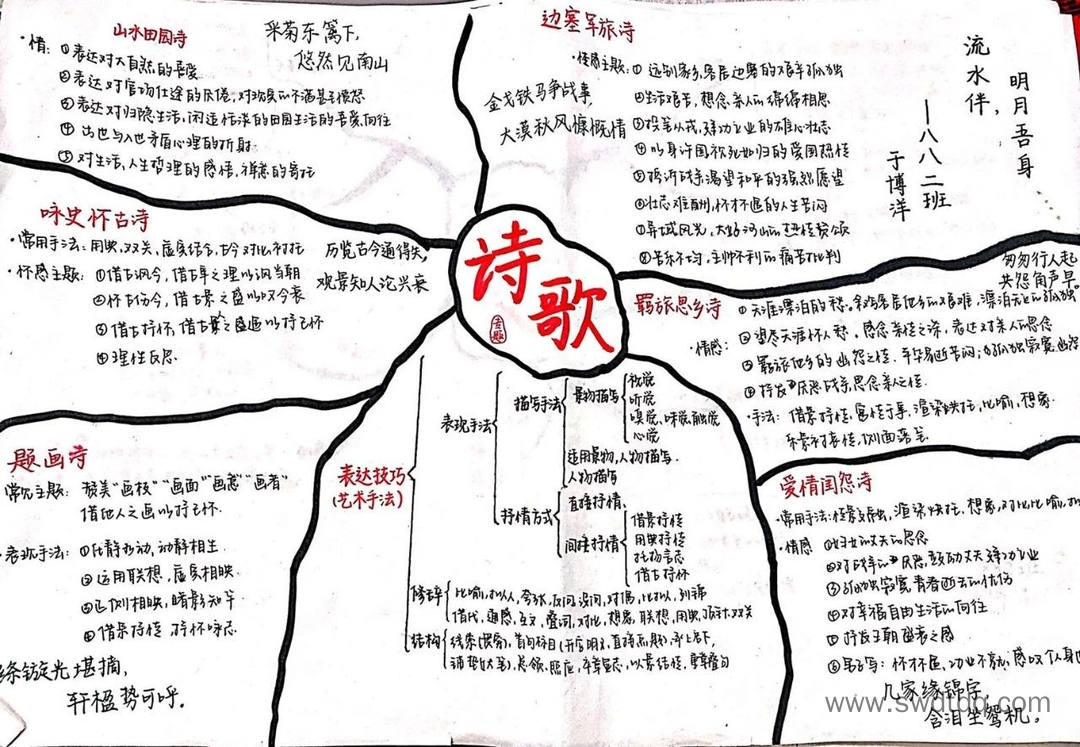 山水田园诗
采菊东篱下，
悠然见南山
·情：①表达对大自然的喜爱
②表达对官场仕途的厌倦，对现实的不满甚至愤怒
③表达对归隐生活，闲适恬淡的田园生活的喜爱向往
④出世与入世矛盾心理的折射
⑤对生活，人生哲理的感悟，禅意的寄托
边塞军旅诗
金戈铁马争战事，
大漠秋风慷慨情
·情感主题：①远别家乡，客居边塞的艰辛孤独
②生活艰苦，想念亲人的绵绵相思
③投笔从戎，建功立业的雄心壮志
④以身许国，视死如归的爱国热情
⑤控诉战争渴望和平的强烈愿望
⑥壮志难酬，怀才不遇的人生苦闷
⑦异域风光，大好河山的热情赞颂
⑧苦乐不均，主帅不利的痛苦批判
流水伴，
明月吾身
——八八二班
于博洋
咏史怀古诗
·常用手法：用典，双关，虚实结合，古今对比，衬托
·怀感主题：①借古讽今，借古年之理以讽当朝
②怀古伤今，借古景之盛以叹今衰
③借古抒怀，借古景之盛遇以抒己怀
④理性反思
历览古今通得失，
观景知人论兴衰
诗歌
专题
羁旅思乡诗
匆匆行人起
共怨角声早。
·情感：
②望尽天涯怀人愁，思念亲情之深，表达对亲人的思念
④抒发对厌恶战争思念亲人之情.
·手法：借景抒情，寓情于事，渲染映托，比喻，想象.
题画诗
常见主题：赞美“画技”“画面”“画意”“画者”
借他人之画以抒己怀.
·表现手法：①化静为动，动静相生.
②运用联想，虚实相映.
③正侧相映，暗影知华
④借景抒情 抒怀咏志
条镟光堪摘，
轩楹势可呼.
表达技巧
(艺术手法)
表现手法
描写手法
景物描写
视觉
听觉
嗅觉，味觉，触觉
心觉
运用景物，人物描写.
人物描写
抒情方式
直接抒情、
间接抒情
借景抒情
用典抒情
托物言志
借古抒怀
修辞
比喻，拟人，夸张，反问，设问，对偶，比拟，列锦
借代，通感，互文，叠词，对比，想象，联想，用典，顶针，双关
结构
线索(眼索)，首句标目(开宗明义，直接点题)，承上启下，
铺垫(大笔)，总领，照应，卒章显志，以景结情，重章叠句
爱情闺怨诗
·情感
②对战争的厌恶，鼓励丈夫建功立业
③孤独寂寞 青春逝去的忧伤
④对幸福自由生活的向往
⑤抒发王朝盛衰之感
几家缘锦字，
含泪坐鸳机。
www.swdtdq.com